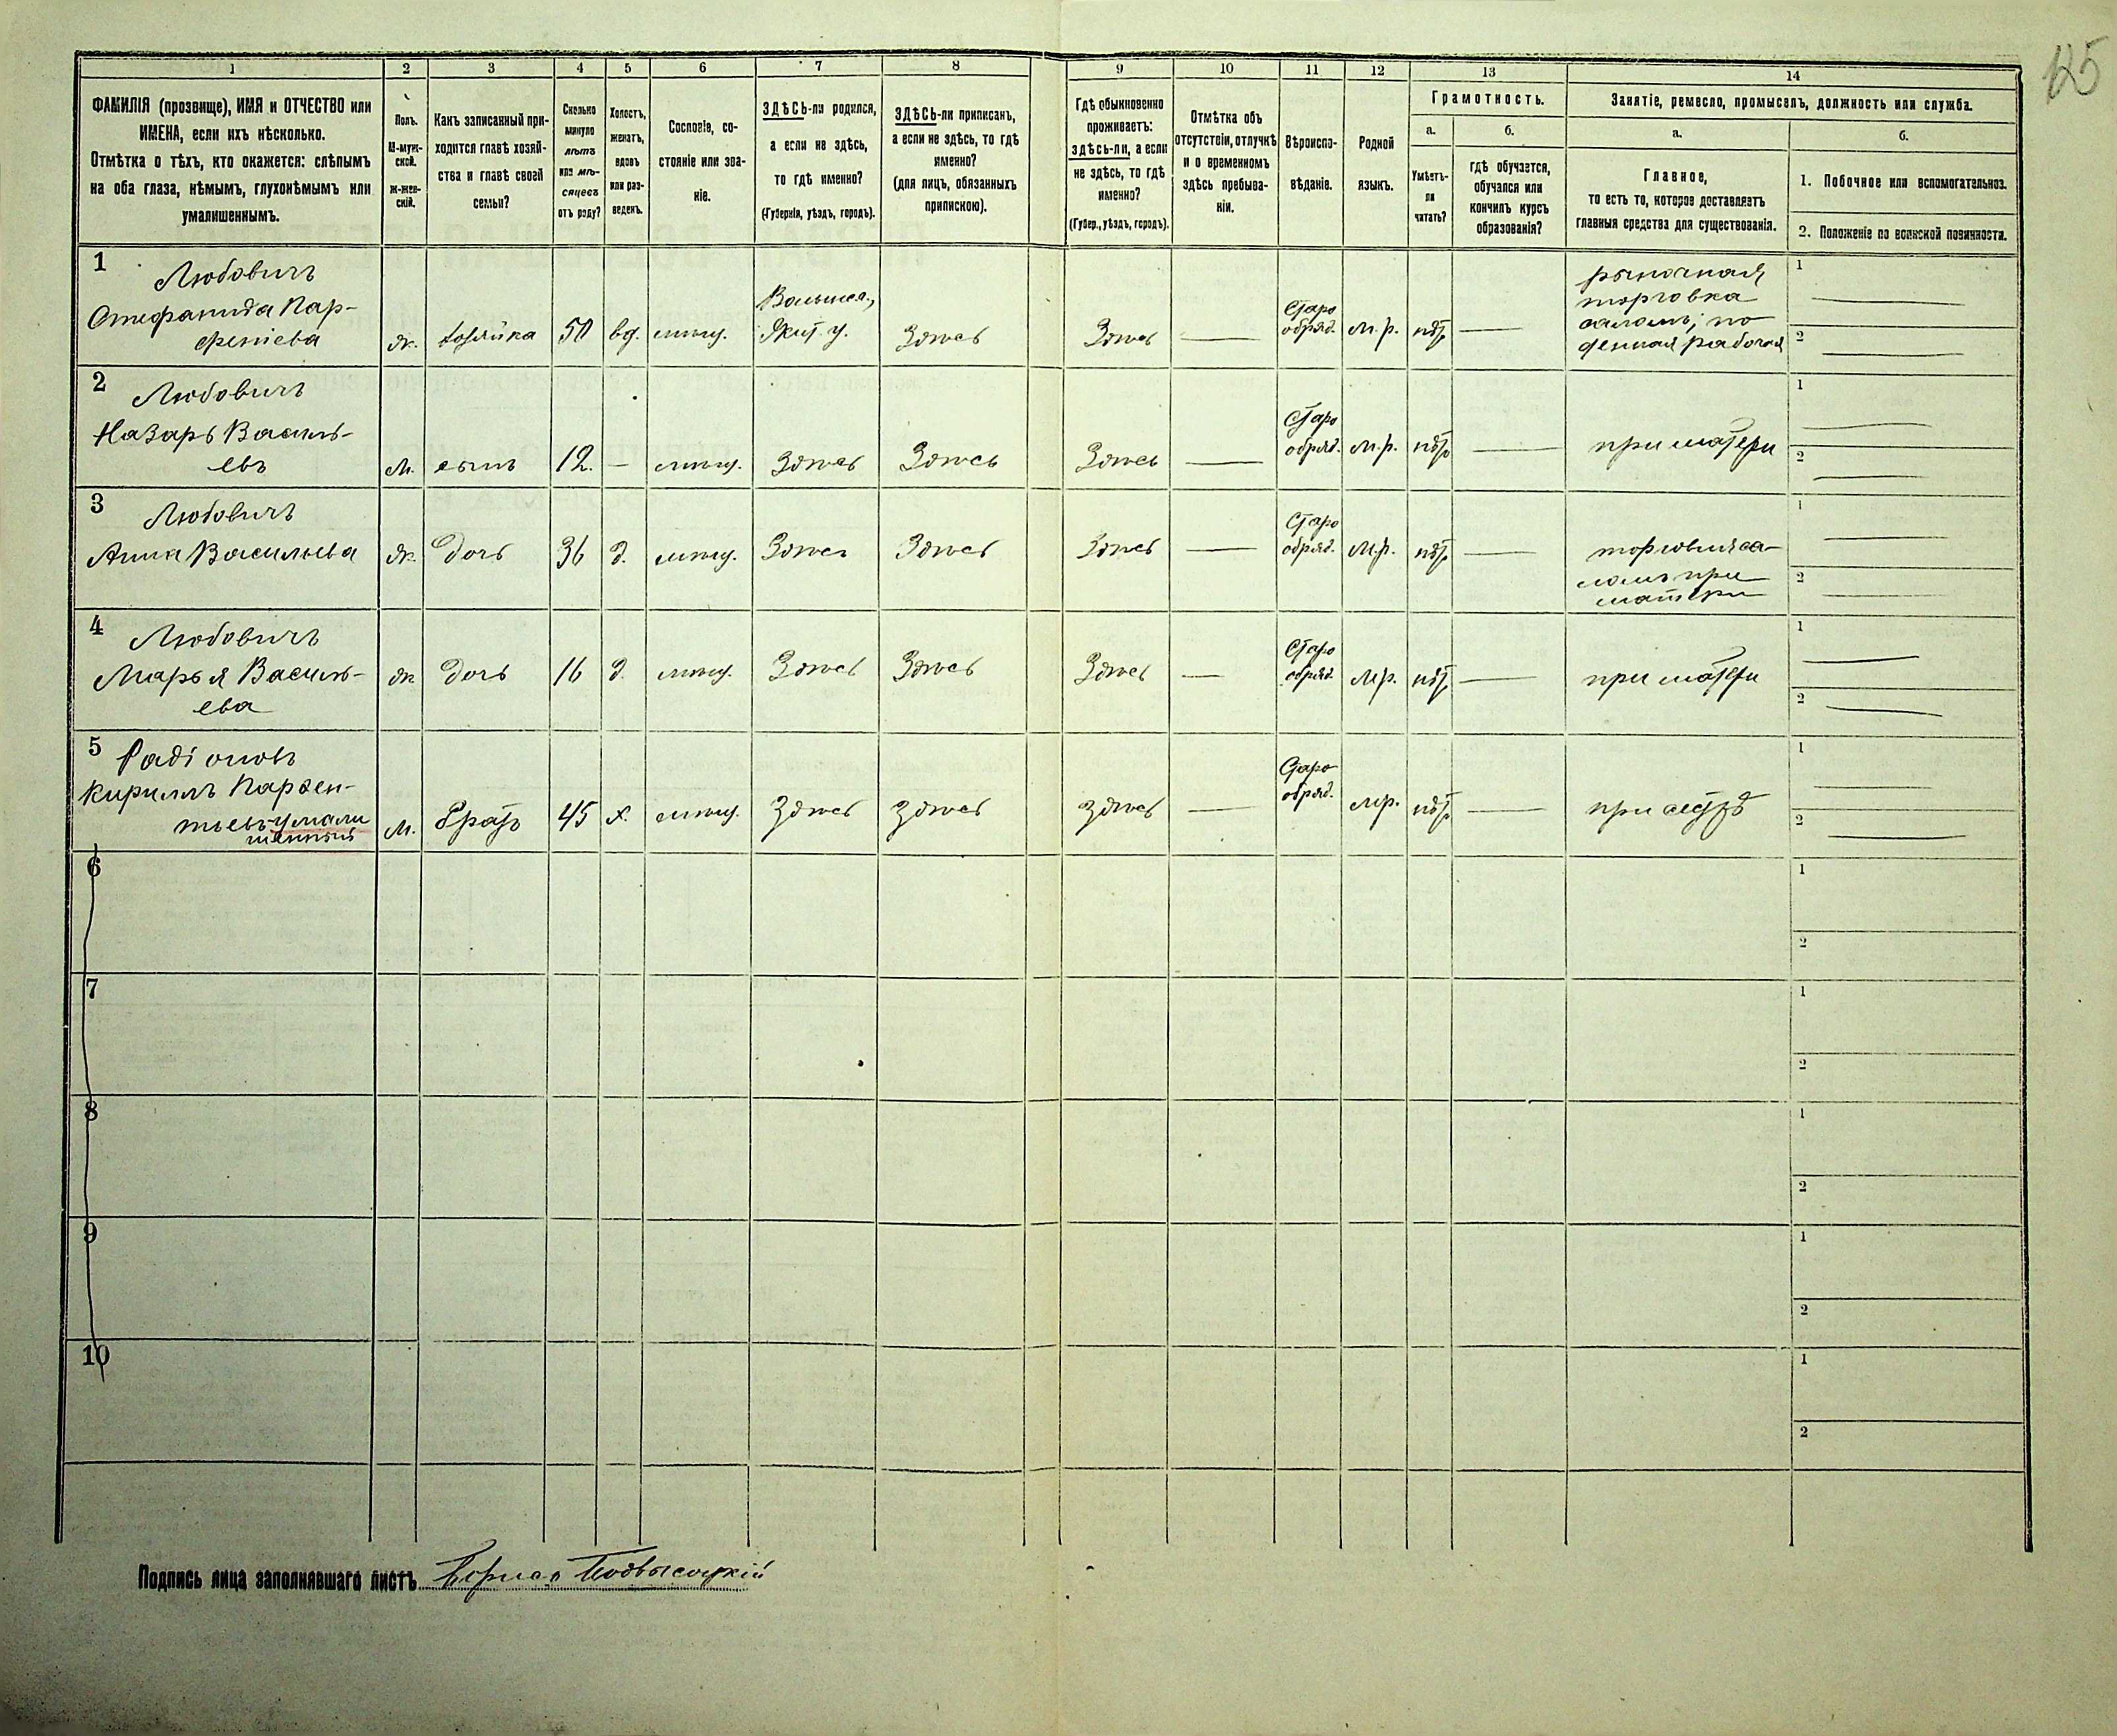 125
1
2
3
4
5
6
7
8
9
10
11
12
13
14
ФАМИЛІЯ (прозвище), ИМЯ и ОТЧЕСТВО или
ИМЕНА, если ихъ нѣсколько.
Отмѣтка о тѣхъ, кто окажется: слѣпымъ
на оба глаза, нѣмымъ, глухонѣмымъ или
умалишеннымъ.
Полъ.
М-муж-
ской.
ж-жен-
скій.
Какъ записанный при-
ходится главѣ хозяй-
ства и главѣ своей
семьи?
Сколько
минуло
лѣтъ
или мѣ-
сяцевъ
отъ роду?
Холостъ,
женатъ,
вдовъ
или раз-
веденъ.
Сословіе, со-
стояніе или зва-
ніе.
ЗДѢСЬ-ли родился,
а если не здѣсь,
то гдѣ именно?
(Губернія, уѣздъ, городъ).
ЗДѢСЬ-ли приписанъ,
а если не здѣсь, то гдѣ
именно?
(для лицъ, обязанныхъ
припискою).
Гдѣ обыкновенно
проживаетъ:
здѣсь-ли, а если
не здѣсь, то гдѣ
именно?
(Губер., уѣздъ, городъ).
Отмѣтка объ
отсутствіи, отлучкѣ
и о временномъ
здѣсь пребыва-
ніи.
Вѣроиспо-
вѣданіе.
Родной
языкъ.
Грамотность.
а.
б.
Умѣетъ-
ли
читать?
гдѣ обучается,
обучался или
кончилъ курсъ
образованія?
Занятіе, ремесло, промыселъ, должность или служба.
а.
б.
Главное,
то есть то, которое доставляетъ
главныя средства для существованія.
1. Побочное или вспомогательное.
2. Положеніе по воинской повинности.
1
Любовичъ
Стефанида Пар-
фенiева
ж.
хозяйка
50
вд.
мѣщ.
Волынск.,
Жит. у.
Здѣсь
Здѣсь
Старо
обряд.
м.р.
нѣт
рыночная
торговка
саломъ; по
денная работа
1
2
2
Любовичъ
Назаръ Василь-
евъ
м.
сынъ
12.
мѣщ.
Здѣсь
Здѣсь
Здѣсь
Старо
обряд.
м.р.
нѣт
при матери
1
2
3
Любовичъ
Анна Васильева
ж.
дочь
36
д.
мѣщ.
Здѣсь
Здѣсь
Здѣсь
Старо
обряд.
м.р.
нѣт
торговля са-
ломъ при
матери
1
2
4
Любовичъ
Марья Василь-
ева
ж.
дочь
16
д.
мѣщ.
Здѣсь
Здѣсь
Здѣсь
Старо
обряд.
м.р.
нѣт
при матери
1
2
5
Радіоновъ
Кириллъ Парфен-
тьевъ умали
шенный
м.
братъ
45
х.
мѣщ.
Здѣсь
Здѣсь
Здѣсь
Старо
обряд.
м.р.
нѣт
при сестрѣ
1
2
6
1
2
7
1
2
8
1
2
9
1
2
10
1
2
Подпись лица заполнявшаго листъ Борисъ Подвысоцкій